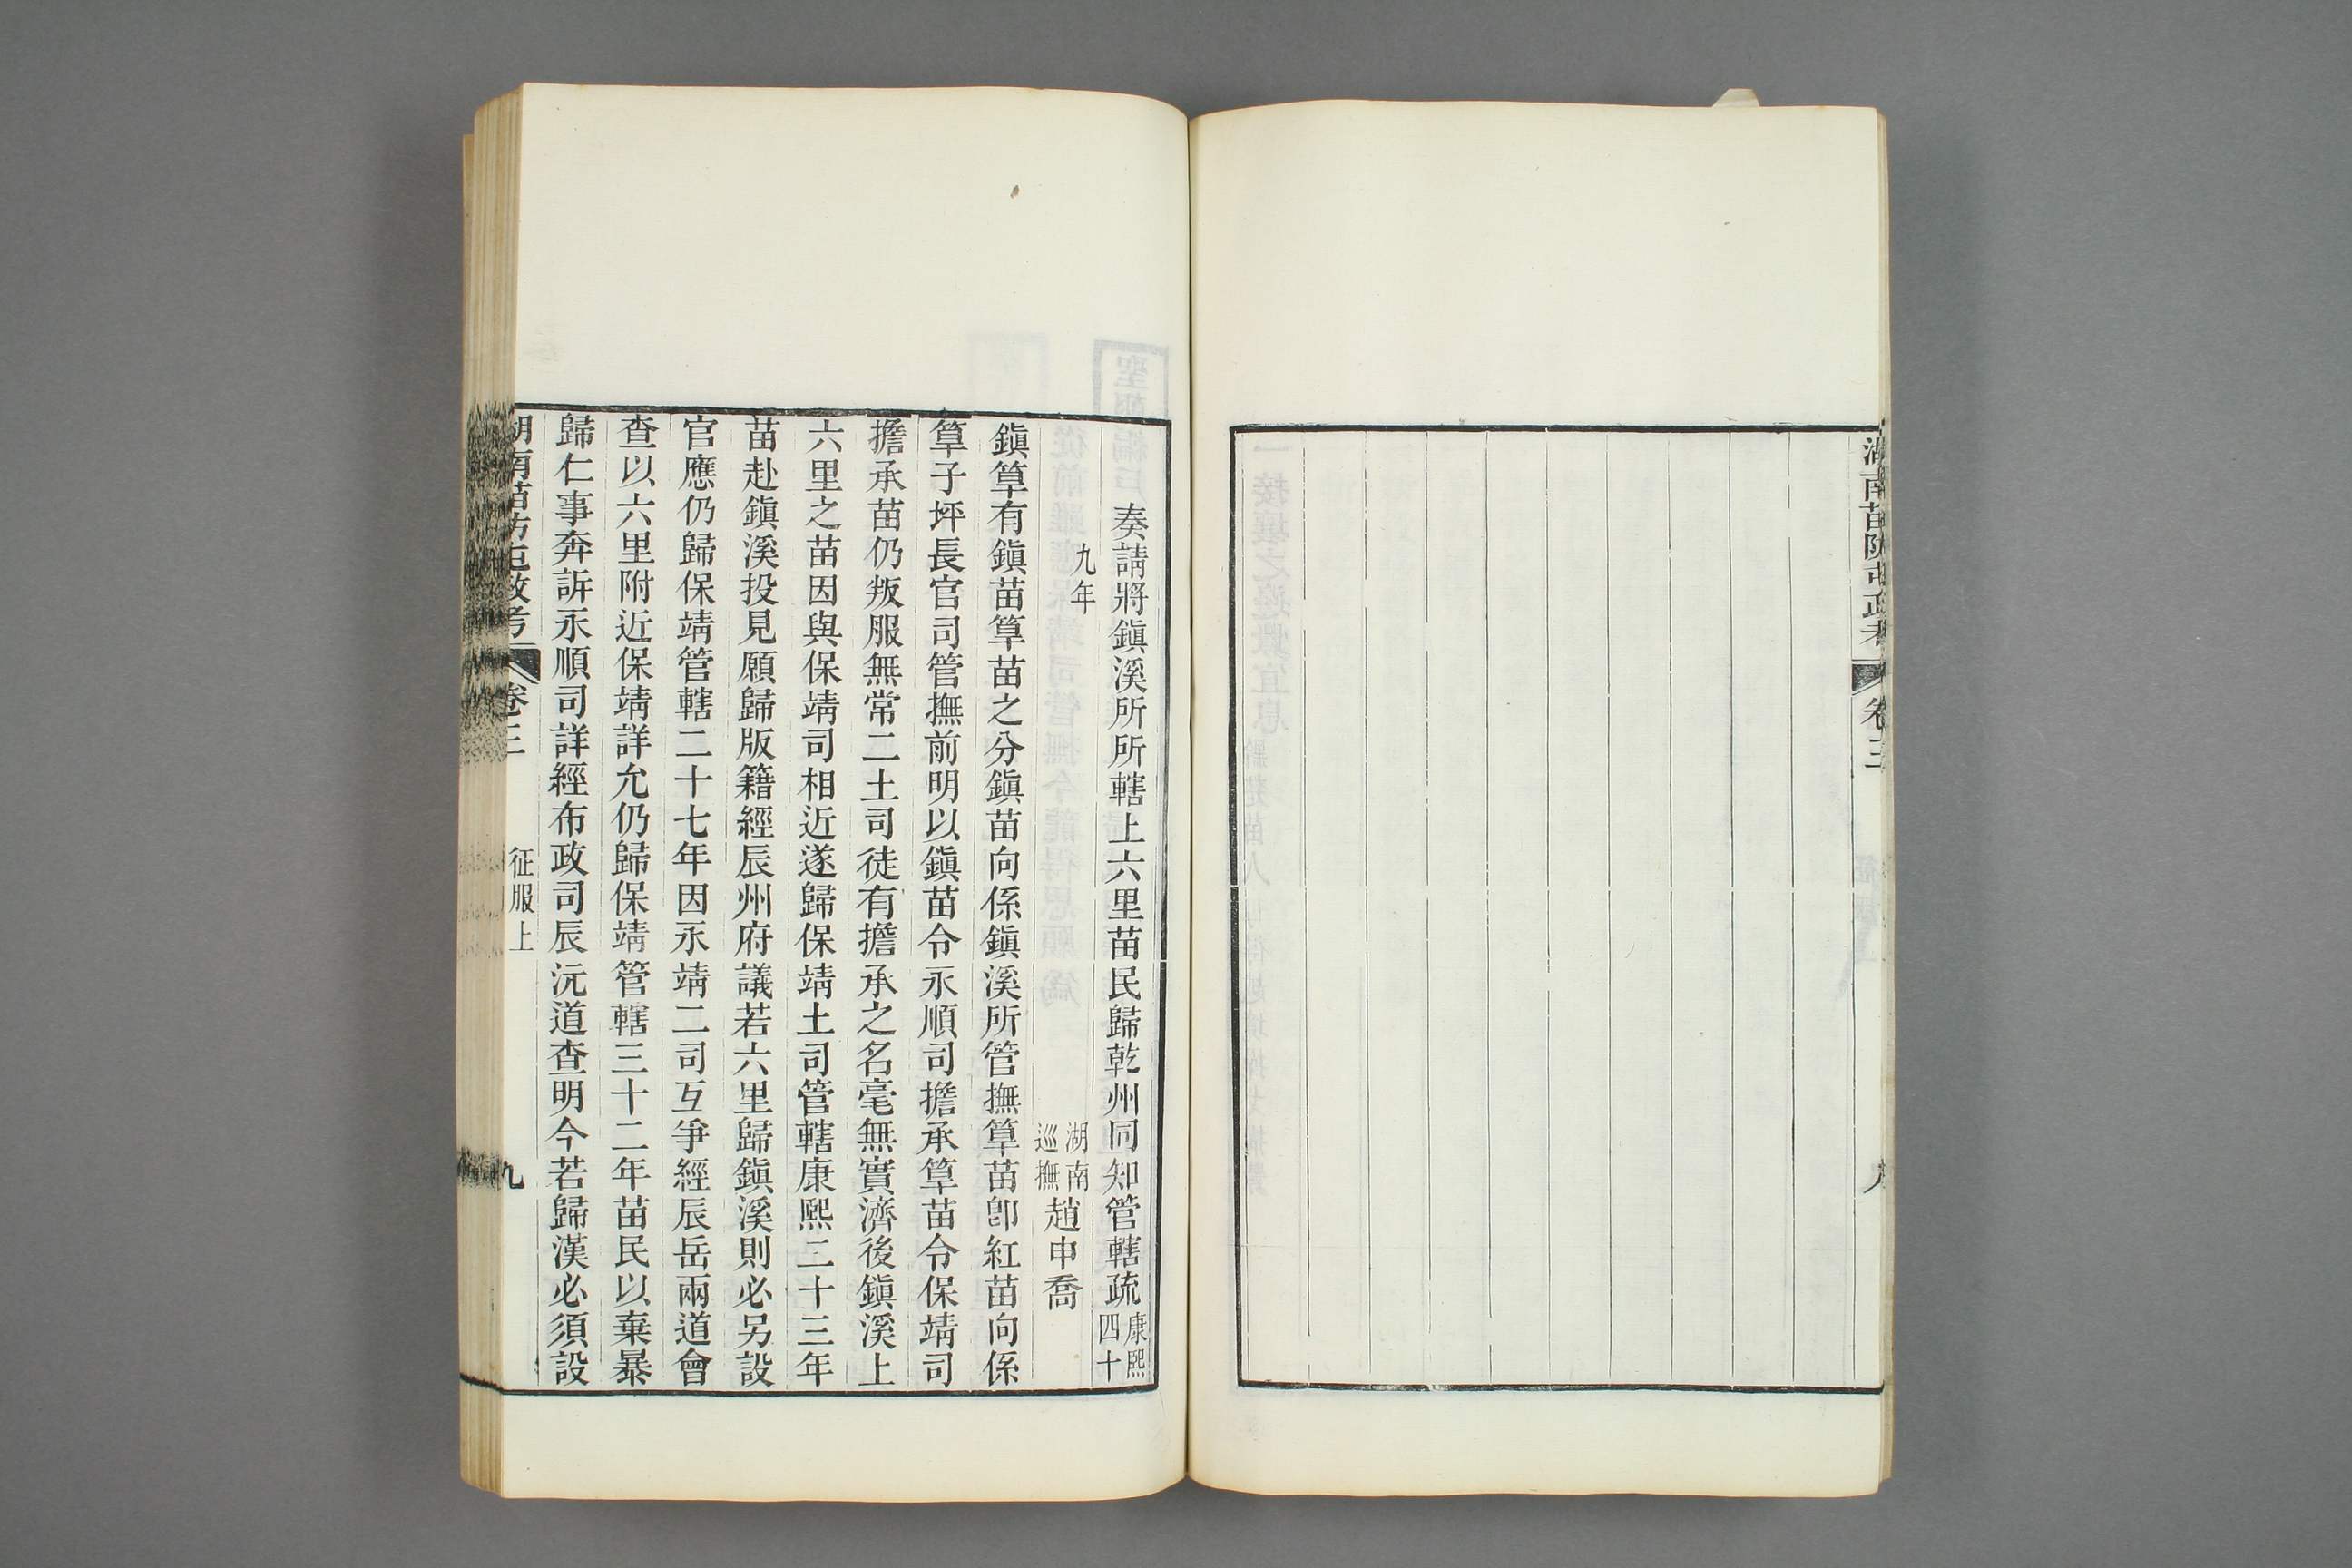 湖南苗防屯政考
卷三
八
奏請將鎭溪所所轄上六里苗民歸乾州同知管轄疏康熙四十
九年
湖南巡撫趙申喬
鎭筸有鎭苗筸苗之分鎭苗向係鎭溪所管撫筸苗卽紅苗向係
筸子坪長官司管撫前明以鎭苗令永順司擔承筸苗令保靖司
擔承苗仍叛服無常二土司徒有擔承之名毫無實濟後鎭溪上
六里之苗因與保靖司相近遂歸保靖土司管轄康熙二十三年
苗赴鎭溪投見願歸版籍經辰州府議若六里歸鎭溪則必另設
官應仍歸保靖管轄二十七年因永靖二司互爭經辰岳兩道會
查以六里附近保靖詳允仍歸保靖管轄三十二年苗民以棄暴
歸仁事奔訴永順司詳經布政司辰沅道查明今若歸漢必須設
湖南苗防屯政考
卷三
征服上
九